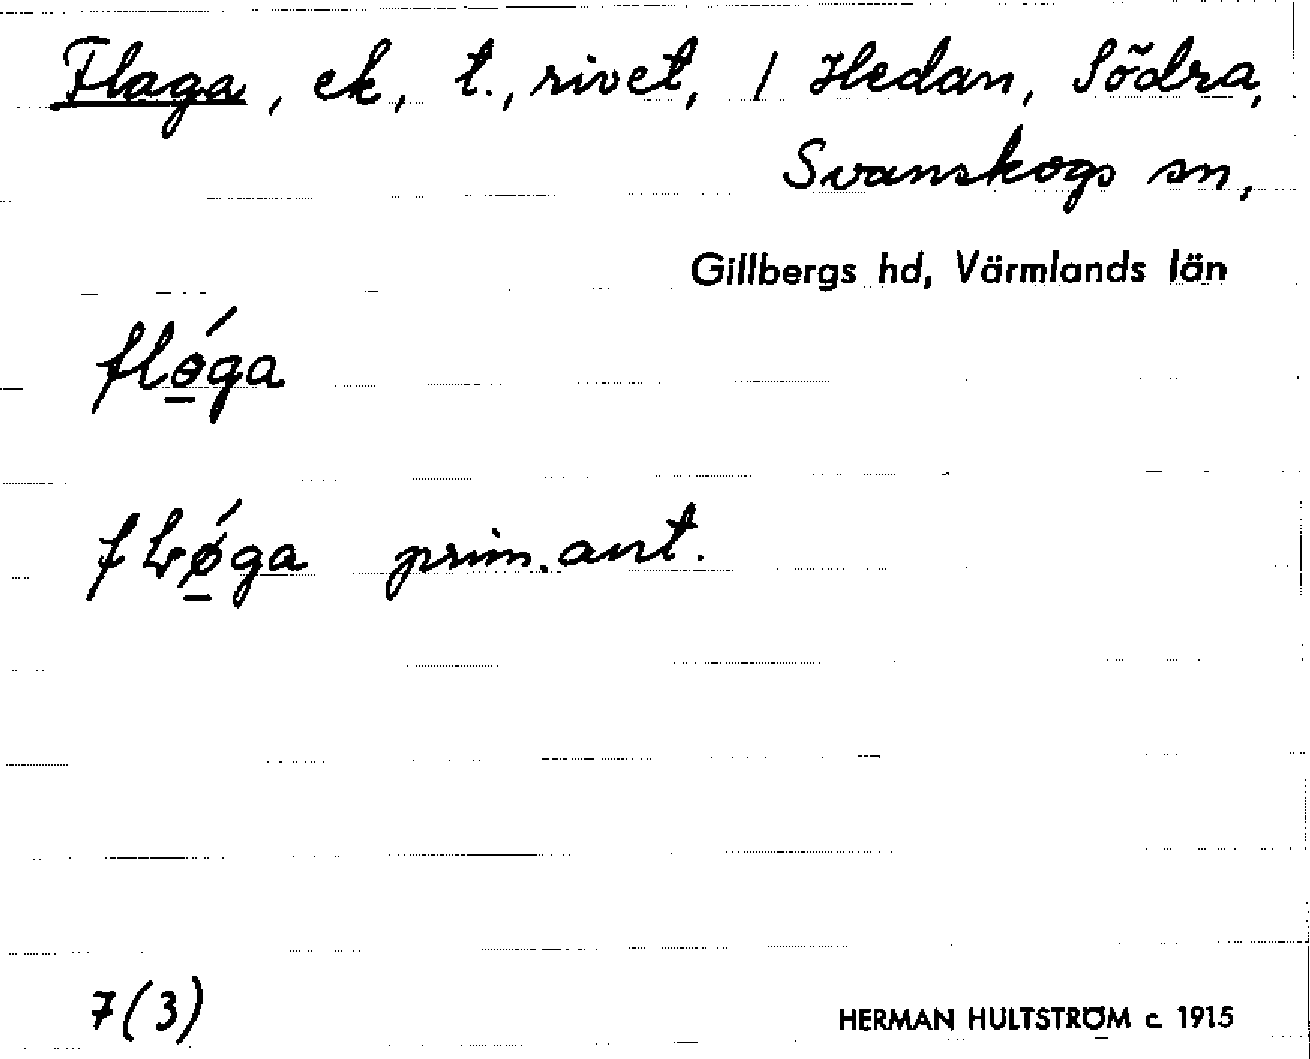 Flaga, ek, t., rivet, / Hedan, Södra,
Svanskogs sn,
Gillbergs hd, Värmlands län
fló̲ga
prim.ant.
7(3)
HERMAN HULTSTRÖM c. 1915